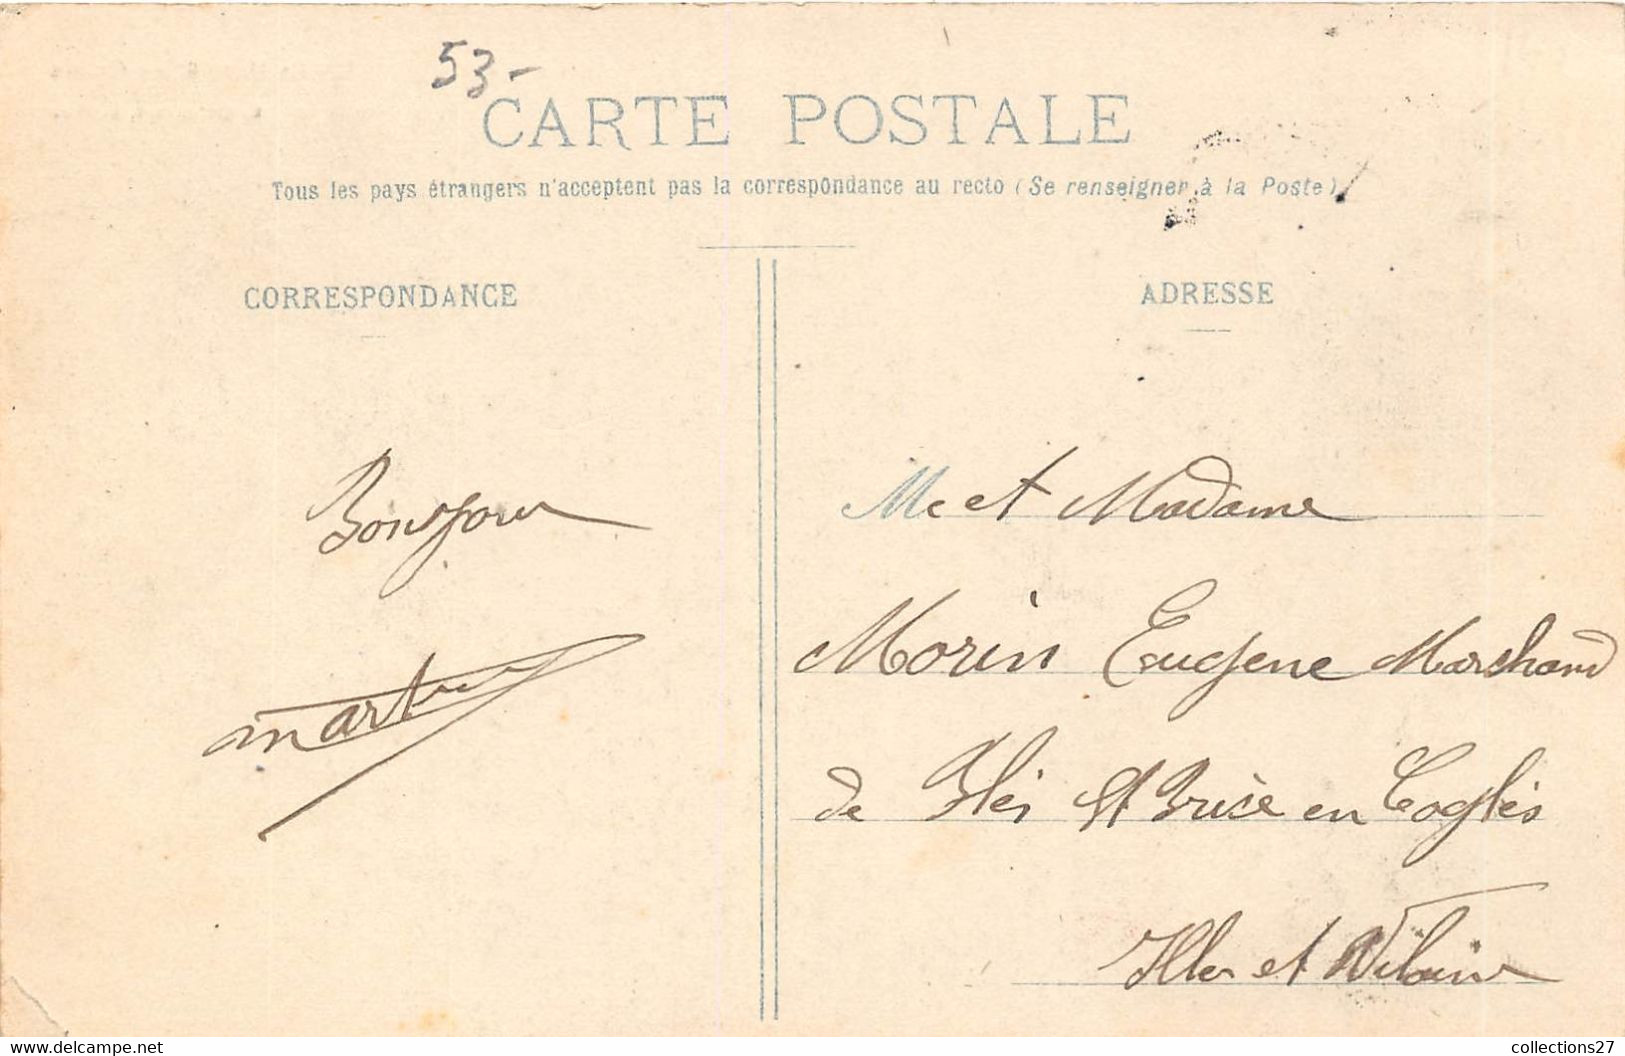 53-
CARTE POSTALE
Tous les pays étrangers n'acceptent pas la correspondance au recto (Se renseigner à la Poste)
CORRESPONDANCE
Bonjour
ADRESSE
Mr et Madame
Morin Eugene Marchand
de Blés St Brice en Coglès
Ille et Vilaine
www.delcampe.net
collections27